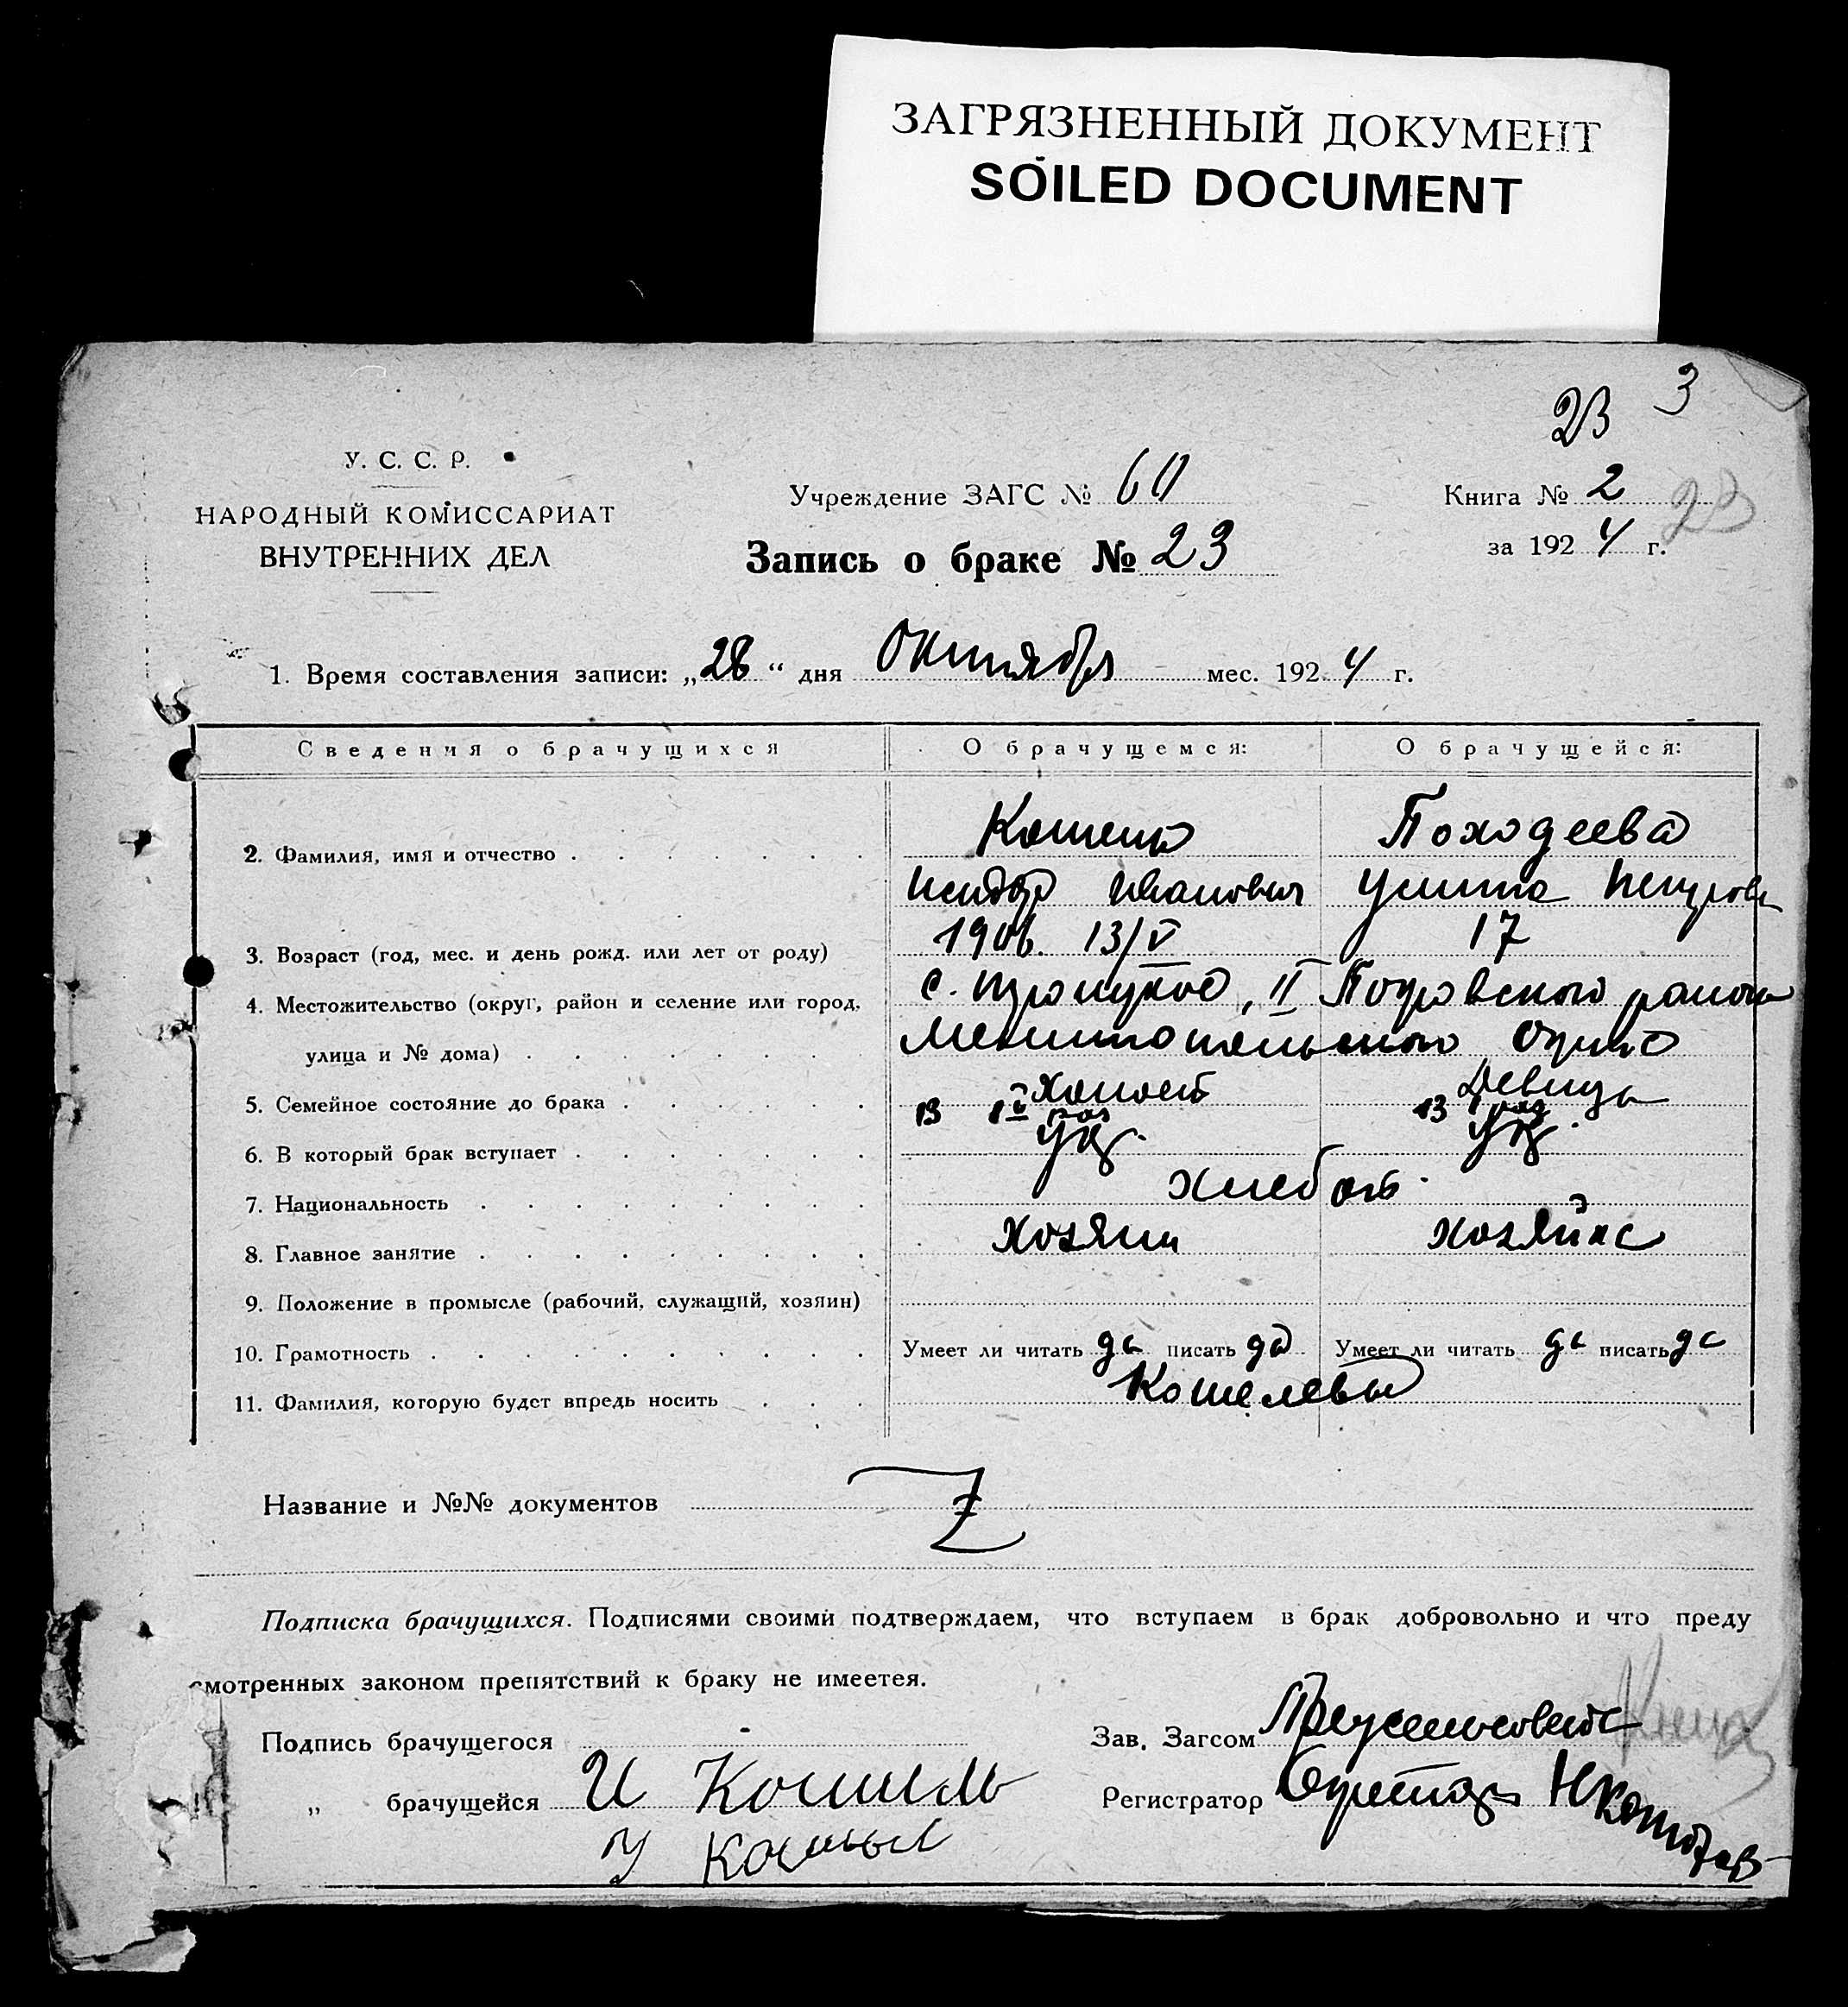 ЗАГРЯЗНЕННЫЙ ДОКУМЕНТ
SOILED DOCUMENT
3
23
У. С. С. Р.
НАРОДНЫЙ КОМИССАРИАТ
ВНУТРЕННИХ ДЕЛ
Учреждение ЗАГС № 60
Книга № 2
23
Запись о браке № 23
за 1924 г.
1. Время составления записи: „28“ дня Октября мес. 1924 г.
Сведения о брачущихся О брачущемся: О брачущейся:
2. Фамилия, имя и отчество Походеева
Исидор Иванович
3. Возраст (год, мес. и день рожд. или лет от роду) 1906. 13/V 17
4. Местожительство (округ, район и селение или город, с. II района
улица и № дома) Мелитопольского Округа
5. Семейное состояние до брака Холост Девица
6. В который брак вступает в раз в раз
укр. укр.
7. Национальность
хлебоп.
8. Главное занятие хозяин
9. Положение в промысле (рабочий, служащий, хозяин)
10. Грамотность Умеет ли читать да писать да Умеет ли читать да писать да
11. Фамилия, которую будет впредь носить Кошелевы
Название и №№ документов Z
Подписка брачущихся. Подписями своими подтверждаем, что вступаем в брак добровольно и что преду
смотренных законом препятствий к браку не имеетея.
Подпись брачущегося
Зав. Загсом
„ брачущейся И Кошель
Регистратор
У